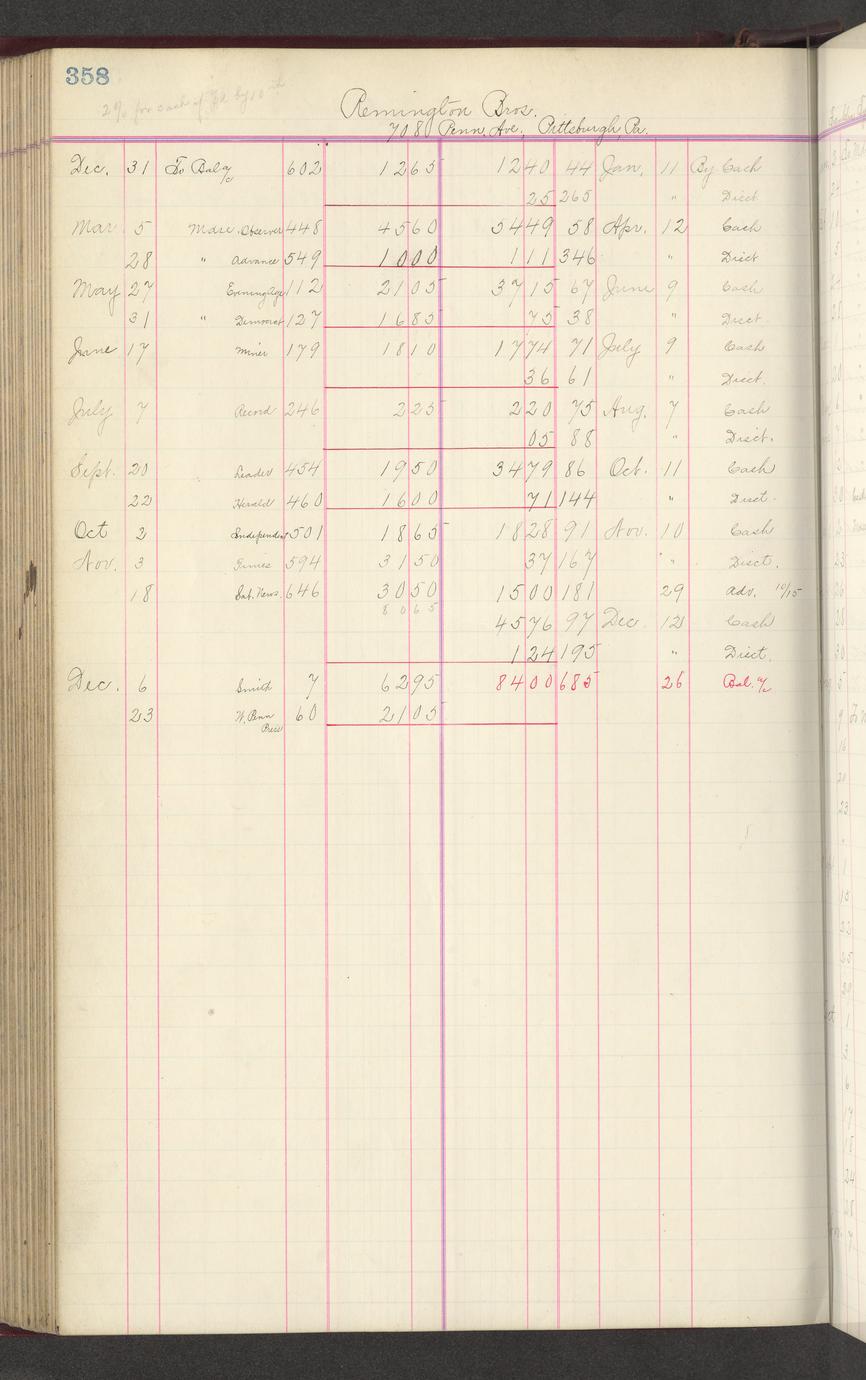 358
2% for cash if pd by 10th
Remington Bros.
708 Penn. Ave., Pittsburgh, Pa.
Dec. 31 To Bal a/c 602 1265 1240 44 Jan. 11 By Cash
25 265 " Disct
Mar 5 Mdse. Observer 448 4560 5449 58 Apr. 12 Cash
28 " Advance 549 1000 111 346 " Disct
May 27 Evening Age 112 2105 3715 67 June 9 Cash
31 " Democrat 127 1685 75 38 " Disct.
June 17 Miner 179 1810 1774 71 July 9 Cash
36 61 " Disct.
July 7 Record 246 225 220 75 Aug. 7 Cash
05 88 " Disct.
Sept. 20 Leader 454 1950 3479 86 Oct. 11 Cash
22 Herald 460 1600 71 144 " Disct.
Oct 2 Independent 501 1865 1828 91 Nov. 10 Cash
Nov. 3 Times 594 3150 37 167 " Disct.
18 Sat. News. 646 3050 1500 181 29 Adv. 10/15
8065
4576 97 Dec 12 Cash
124 195 " Disct.
Dec. 6 Smith 7 6295 8400 685 26 Bal. a/c
23 W. Penn 60 2105
Press